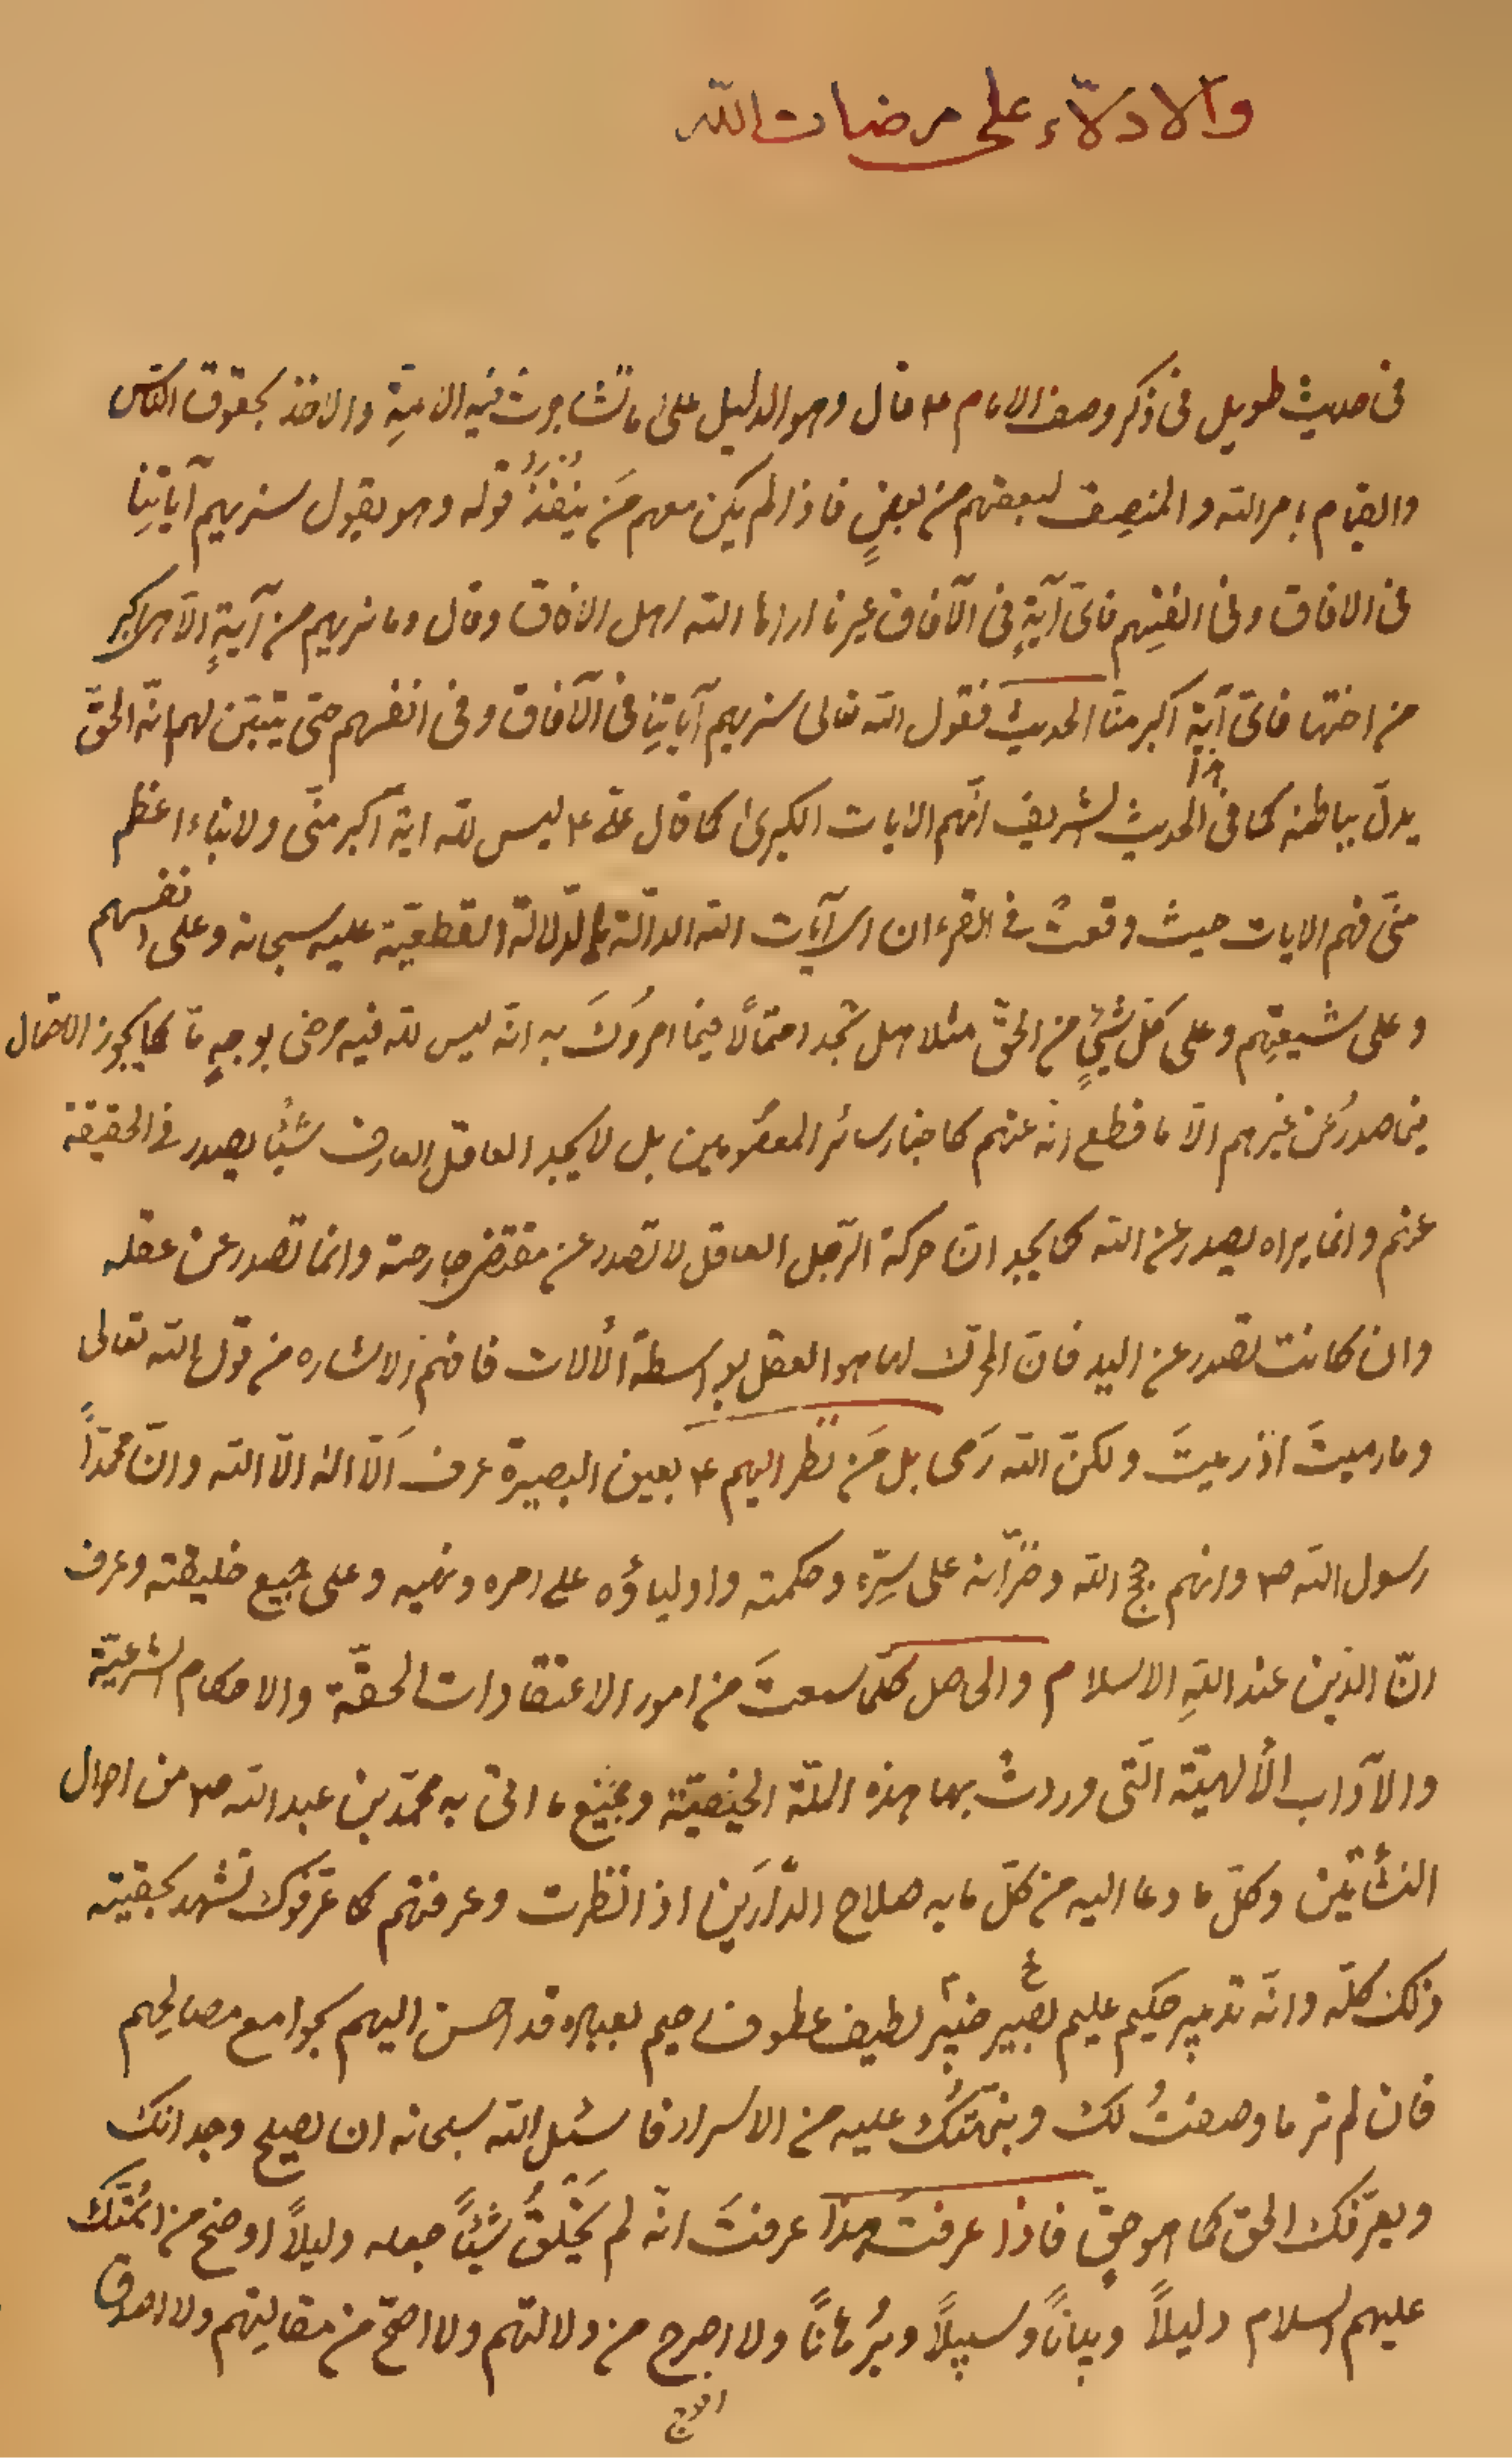 والادلاّء على مرضات الله
فى حديث طويل فى ذكر وصف الامام ع قال وهو الدليل على ما تشاجرت فيه الامّة والاخذ بحقوق الناس
والقيام بامر الله والمنصِف لبعضهم من بعضٍ فاذا لم يكن معهم مَن يُنفِذُ قوله وهو يقول سنريهم آياتِنا
فى الافاق وفى انفسِهم فاىّ آيةٍ فى الآفاق غيرنا اراها الله اهل الافاق وقال وما نريهم من آيةٍ الّا هى اكبر
من اختها فاىّ آية اكبر منّا الحديث فقول الله تعالى سنريهم آياتِنا فى الآفاق وفى انفسهم حتى يتبيّن لهم انّه الحقّ
يدلّ بباطنه كما فى هذا الحديث الشريف انّهم الايات الكبرىٰ كما قال علىّ ع ليس لله اية اكبر منّى ولا نباء اعظم
منّى فهم الايات حيث وقعتْ فى القرءان اى آيات الله الدالّة بالدّلالة القطعيّة عليه سبحانه وعلى انفسهم
وعلى شيعتِهم وعلى كلّ شىءٍ من الحقّ مثلا هل تجد احتمالًا فيما امروُكَ به انّه ليس لله فيه رضى بوجهٍ مّا كما يجوز الاحتمال
فيما صدرُ عن غيرهم الّا ما قطع انّه عنهم كاخبار سائر المعصُومين بل لا يجد العاقل العارف شيئًا يصدر فى الحقيقة
عنهم وانما يراه يصدر عن الله كما يجد انّ حركة الرّجل العاقل لا تصدر عن مقتضى جارحته وانما تصدر عن عقله
وان كانت تصدر عن اليد فانّ المحرّك لها هو العقل بواسطة الألات فافهم الاشاره من قول الله تعالى
وما رميتَ اذ رميتَ ولكنّ الله رَمى بل مَن نظر اليهم ع بعين البصيرة عرف اَلّا الٰه الّا الله وانّ محمّدًا
رسول الله ص وانهم حجج الله وخزّانه على سِرّه وحكمته واولياؤه على امره ونهيه وعلى جميع خليقته وعرف
انّ الدّين عند اللهِ الاسلام والحاصل كلّما سمعتَ من امور الاعتقادات الحقّة والاحكام الشرعيّة
والآداب الألهيّة الّتى وردتْ بها هذه الملّة الحنيفيّة وجميع ما اتى به محمّد بن عبد الله ص من احوال
النشأتين وكلّ ما دعا اليه من كلّ ما به صلاح الدّارَين اذا نظرت وعرفتهم كما عرّفوك تشهد بحقيّته
ذلك كلّه وانّه تدبير حكيم عليم بصير خبير لطيف عطوف رحيم بعباده قد احسن اليهم بجوامع مصالحهم
فان لم تر ما وصفتُ لك ونبّهتُك عليه من الاسرار فاسئل الله سبحانه ان يصلح وجدانك
ويعرّفك الحق كما هو حقّ فاذا عرفتَ هذا عرفتَ انّه لم يَخلُق شيئًا جعله دليلًا اوضح من ائمّتك
عليهم السلام دليلًا وبيانًا وسبيلًا وبُرهانًا ولا اصرح من دلالتهم ولا اصحّ من مقالتِهم ولا اصدق